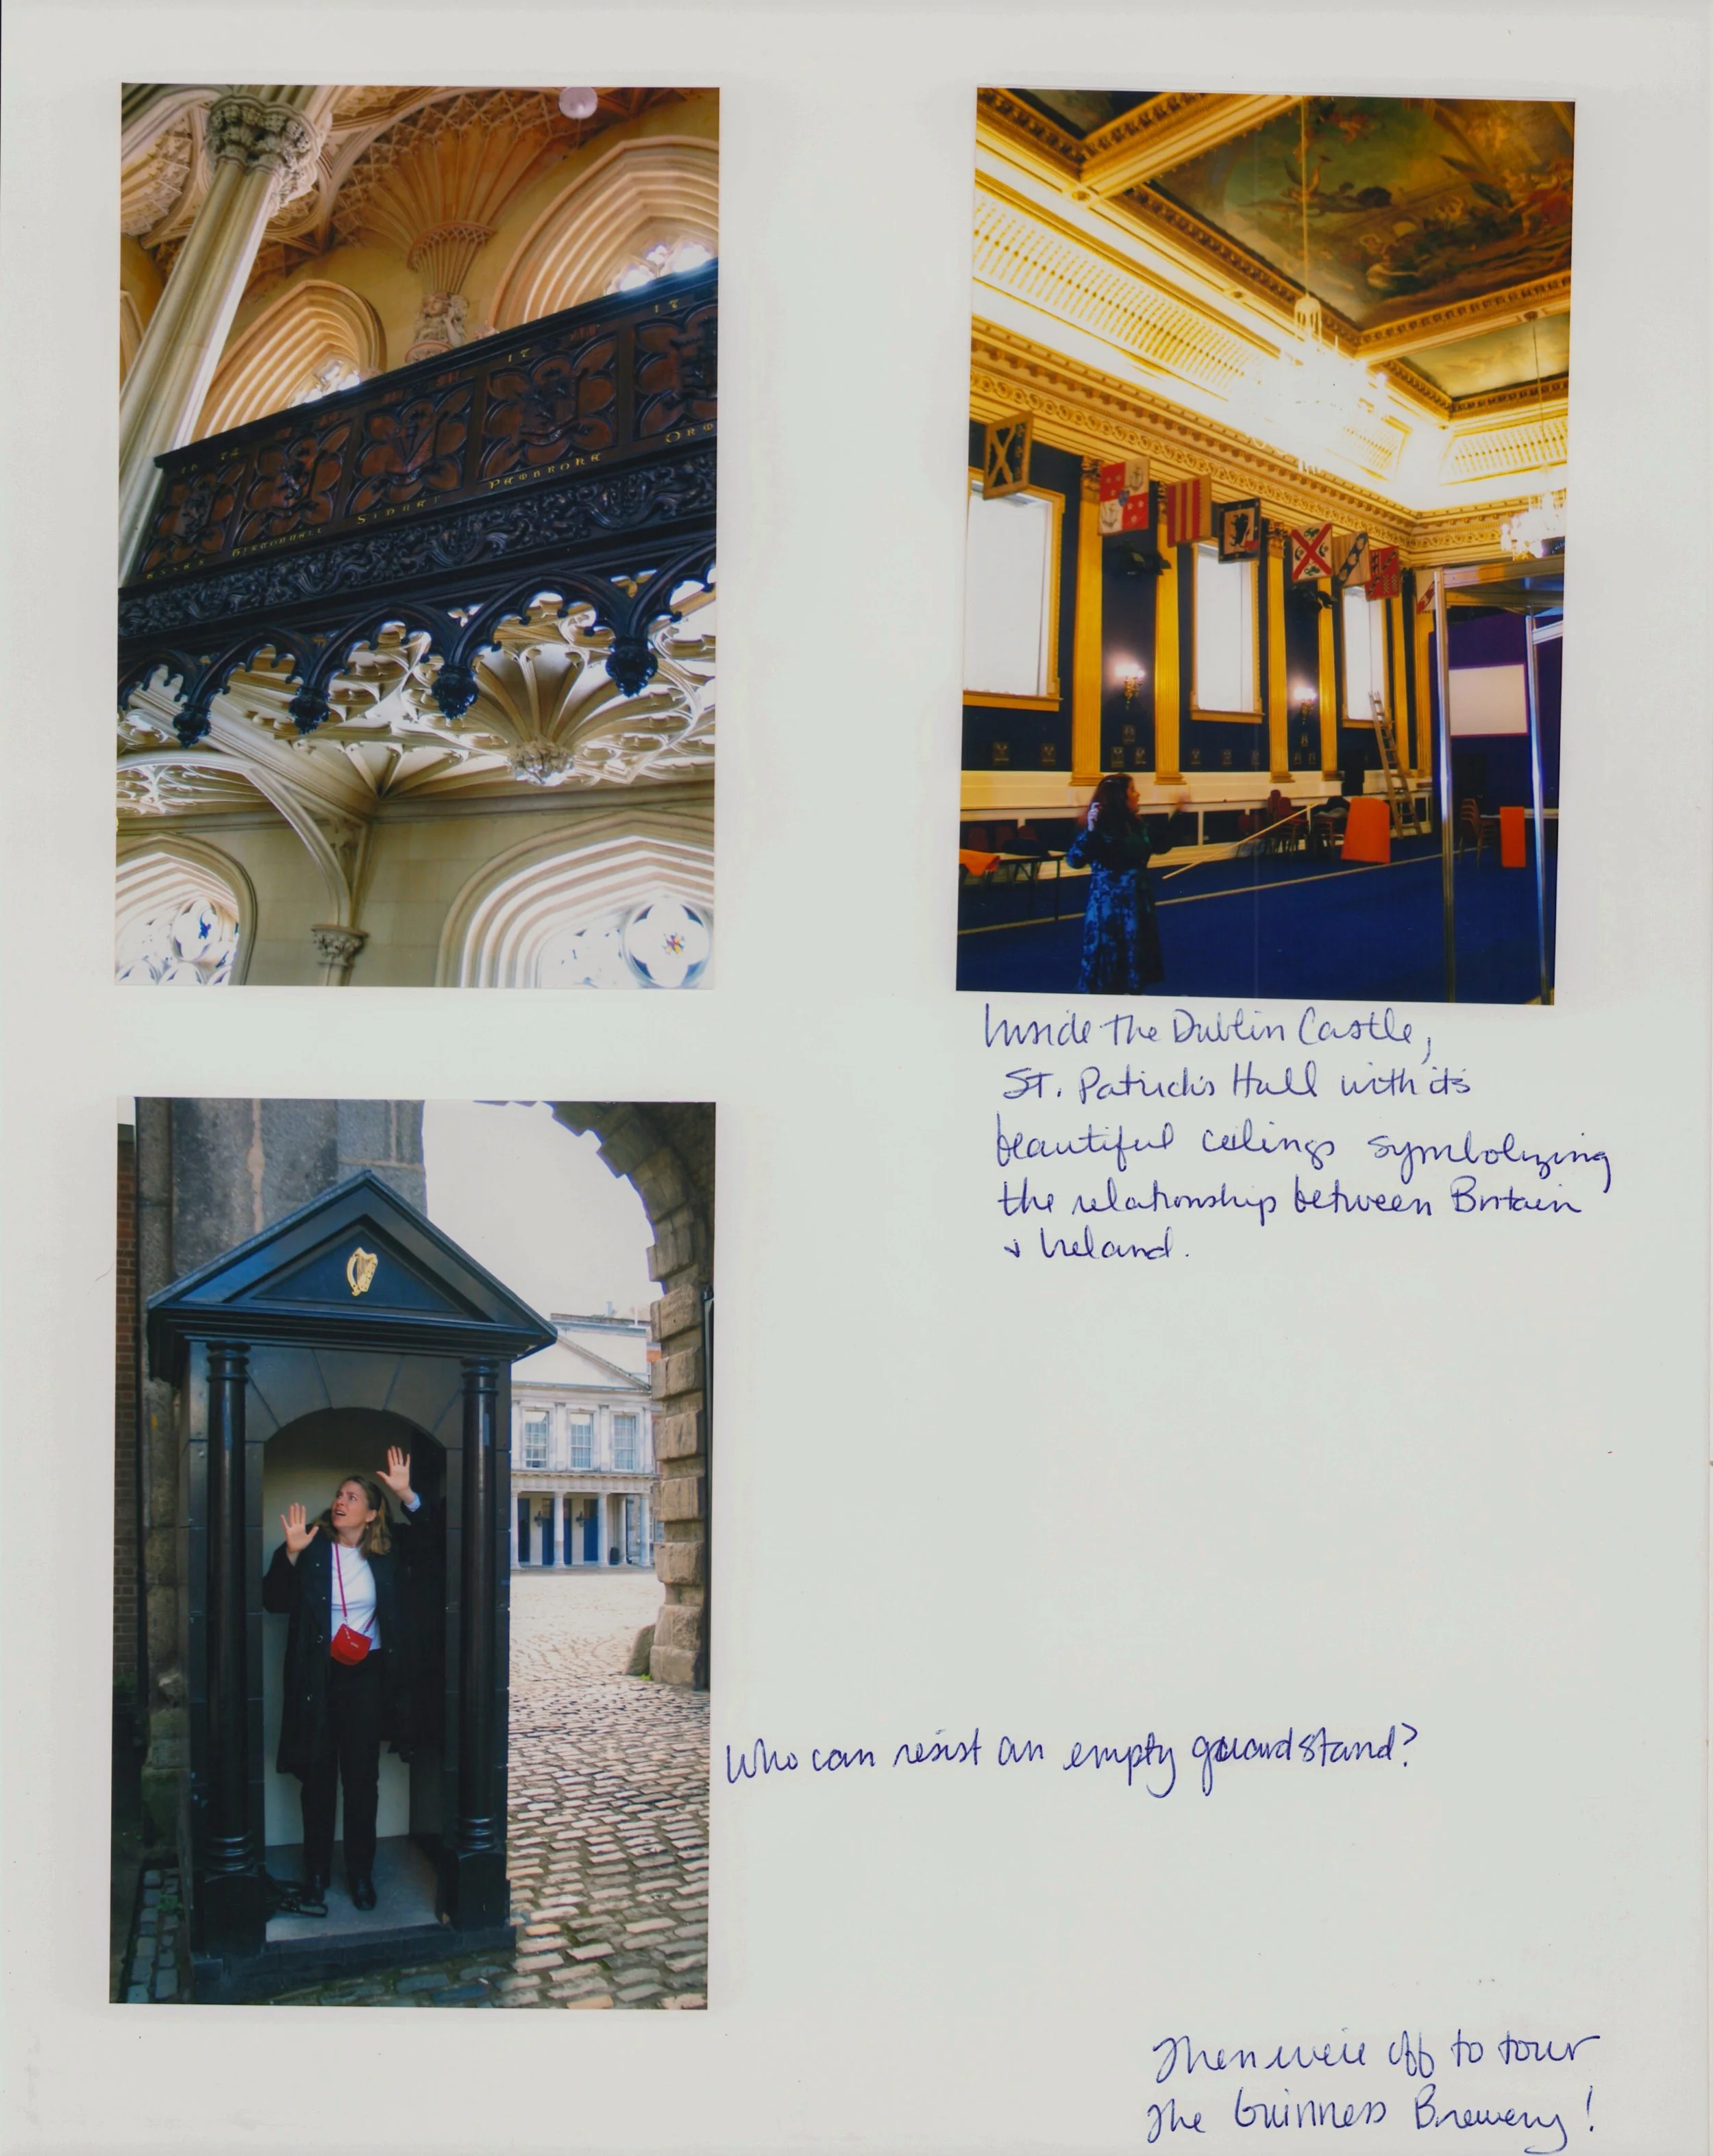 16 74
17
17
ESSEX
SIDNEY
PEMBROKE
ORMO
Inside the Dublin Castle,
St. Patrick's Hall with its
beautiful ceilings symbolizing
the relationship between Britain
& Ireland.
Who can resist an empty guard stand?
Then we're off to tour
The Guinness Brewery!